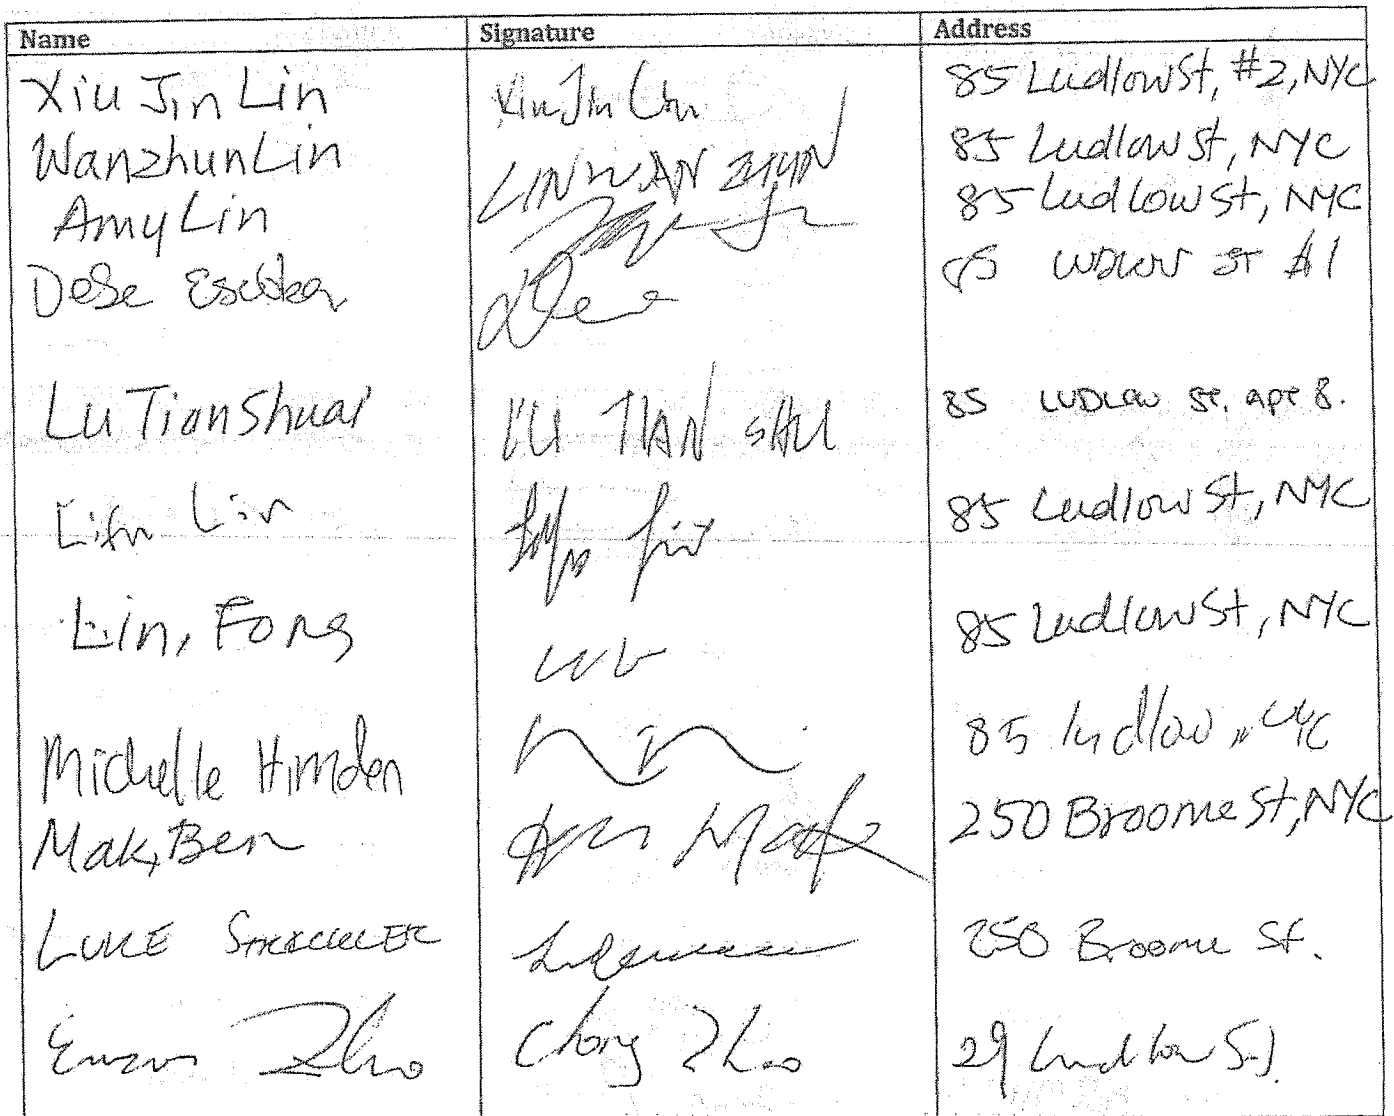 Name Signature Address
Xiu Jin Lin Xiu Jin Lin 85 Ludlow St, #2, NYC
Wanzhun Lin LIN WAN ZHUN 85 Ludlow St, NYC
Amy Lin 85 Ludlow St, NYC
Dese Escobar 85 LUDLOW ST #1
Lu Tian Shuai LU TIAN SHU 85 LUDLOW St. apt 8.
Lin 85 Ludlow St, NYC
Lin, Fong 85 Ludlow St, NYC
Michelle 85 ludlow, NYC
Mak, Ben Mak 250 Broome St, NYC
LUKE 250 Broome St.
Zho Chong Zho 29 Ludlow St